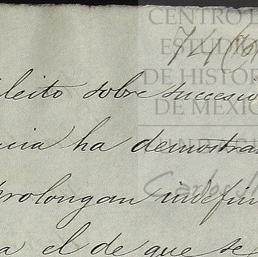 CENTRO D
ESTUDIO
DE HISTOR
DE MÉXIC
74
leito sobre sucesio
cia ha demostra
prolongan indefin
a el de que se
Carlos